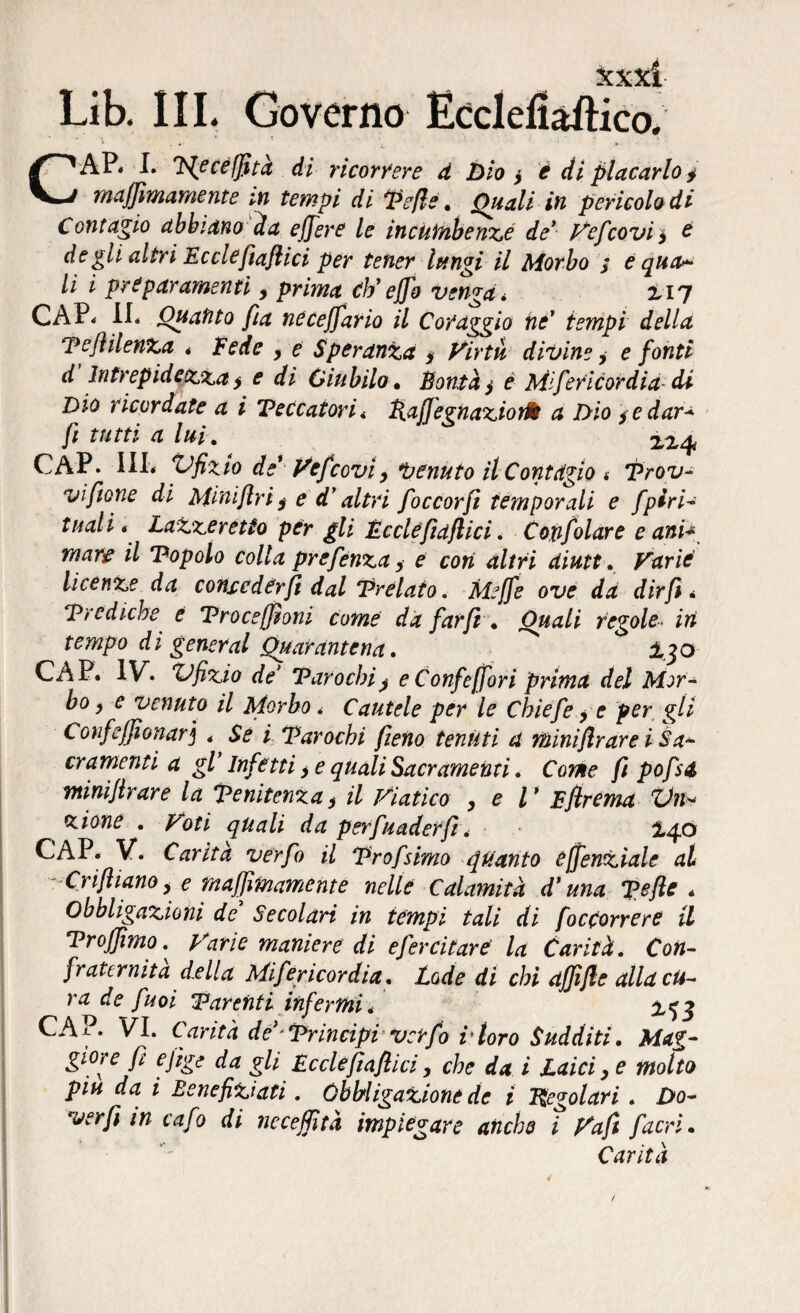 xxxi
Lib. III. Governo Ecclesiastico.
CAP. I. Necessità di ricorrere a Dio, e di placarlo,
massimamente in tempi di Peste. Quali in pericolo di
Contagio abbiano da essere le incumbenze de' Vescovi, e
degli altri Ecclesiastici per tener lungi il Morbo; e qua-
li i preparamenti, prima ch' esso venga. 217
CAP. II. Quanto sia necessario il Coraggio ne' tempi della
Pestilenza. Fede, e Speranza, Virtù divine, e fonti
d' Intrepidezza, e di Giubilo. Bontà, e Misericordia di
Dio ricordate a i Peccatori. Rassegnazione a Dio, e dar-
si tutti a lui. 224
CAP. III. Ufizio de' Vescovi, venuto il Contagio. Prov-
visione di Ministri, e d' altri soccorsi temporali e spiri-
tuali. Lazzeretto per gli Ecclesiastici. Consolare e ani-
mare il Popolo colla presenza, e con altri aiuti. Varie
licenze da concedersi dal Prelato. Messe ove da dirsi.
Prediche e Processioni come da farsi. Quali regole in
tempo di general Quarantena. 230
CAP. IV. Ufizio de' Parochi, e Confessori prima del Mor-
bo, e venuto il Morbo. Cautele per le Chiese, e per gli
Confessionarj. Se i Parochi sieno tenuti a ministrare i Sa-
cramenti a gl' Infetti, e quali Sacramenti. Come si possa
ministrare la Penitenza, il Viatico, e l' Estrema Un-
zione. Voti quali da persuadersi. 240
CAP. V. Carità verso il Prossimo quanto essenziale al
Cristiano, e massimamente nelle Calamità d' una Peste.
Obbligazioni de' Secolari in tempi tali di soccorrere il
Prossimo. Varie maniere di esercitare la Carità. Con-
fraternità della Misericordia. Lode di chi assiste alla cu-
ra de suoi Parenti infermi. 253
CAP. VI. Carità de' Principi verso i loro Sudditi. Mag-
giore si esige da gli Ecclesiastici, che da i Laici, e molto
più da i Benefiziati. Obbligazione de i Regolari. Do-
versi in caso di necessità impiegare anche i Vasi sacri.
Carità